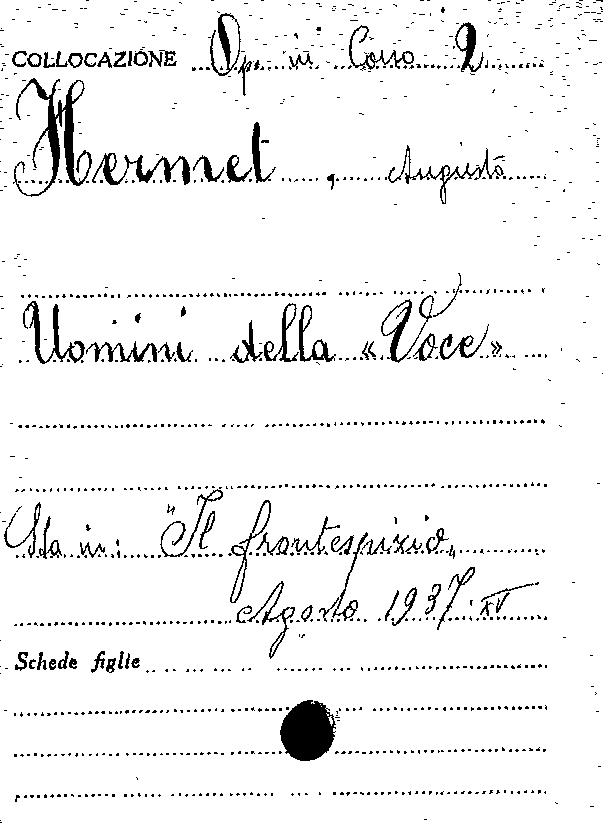 COLLOCAZIONE Op. in Corso 2
Hermet, Augusto
Uomini della «Voce»
Sta in: "Il frontespizio"
Agosto 1937. XV
Schede figlie